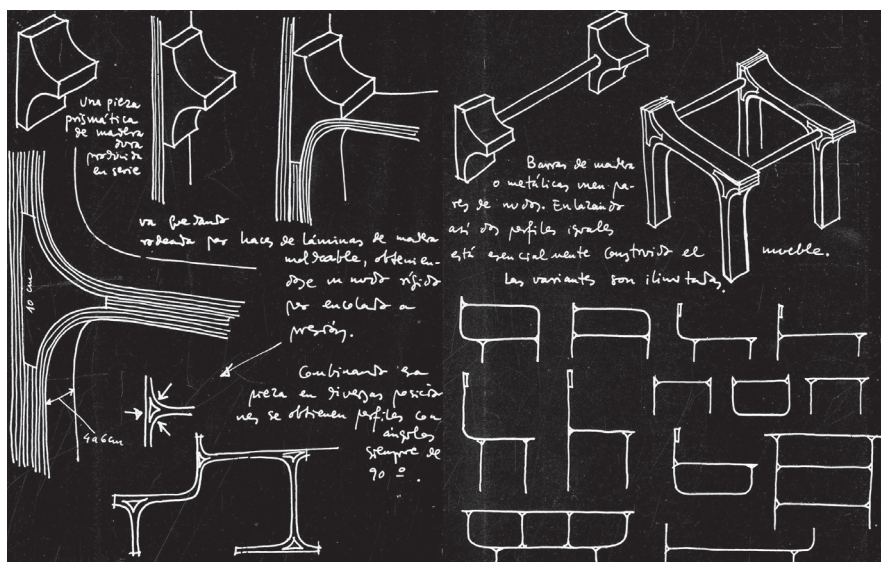 una pieza
prismática
de madera
dura
producida
en serie
va quedando
rodeada por haces de láminas de madera
moldeable, obtenien-
dose un nudo rígido
por encolado a
presión.
10 cm
4 a 6 cm
Combinando esa
pieza en diversas posicio
nes se obtienen perfiles con
ángulos
siempre de
90 º.
Barras de madera
o metálicas unen pa-
res de nudos. Enlazando
así dos perfiles iguales
está esencialmente construido el mueble.
Las variantes son ilimitadas.